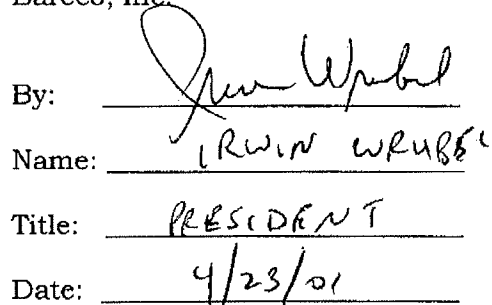 By: Irwin Wrubel
Name: IRWIN WRUBEL
Title: PRESIDENT
Date: 4/23/01